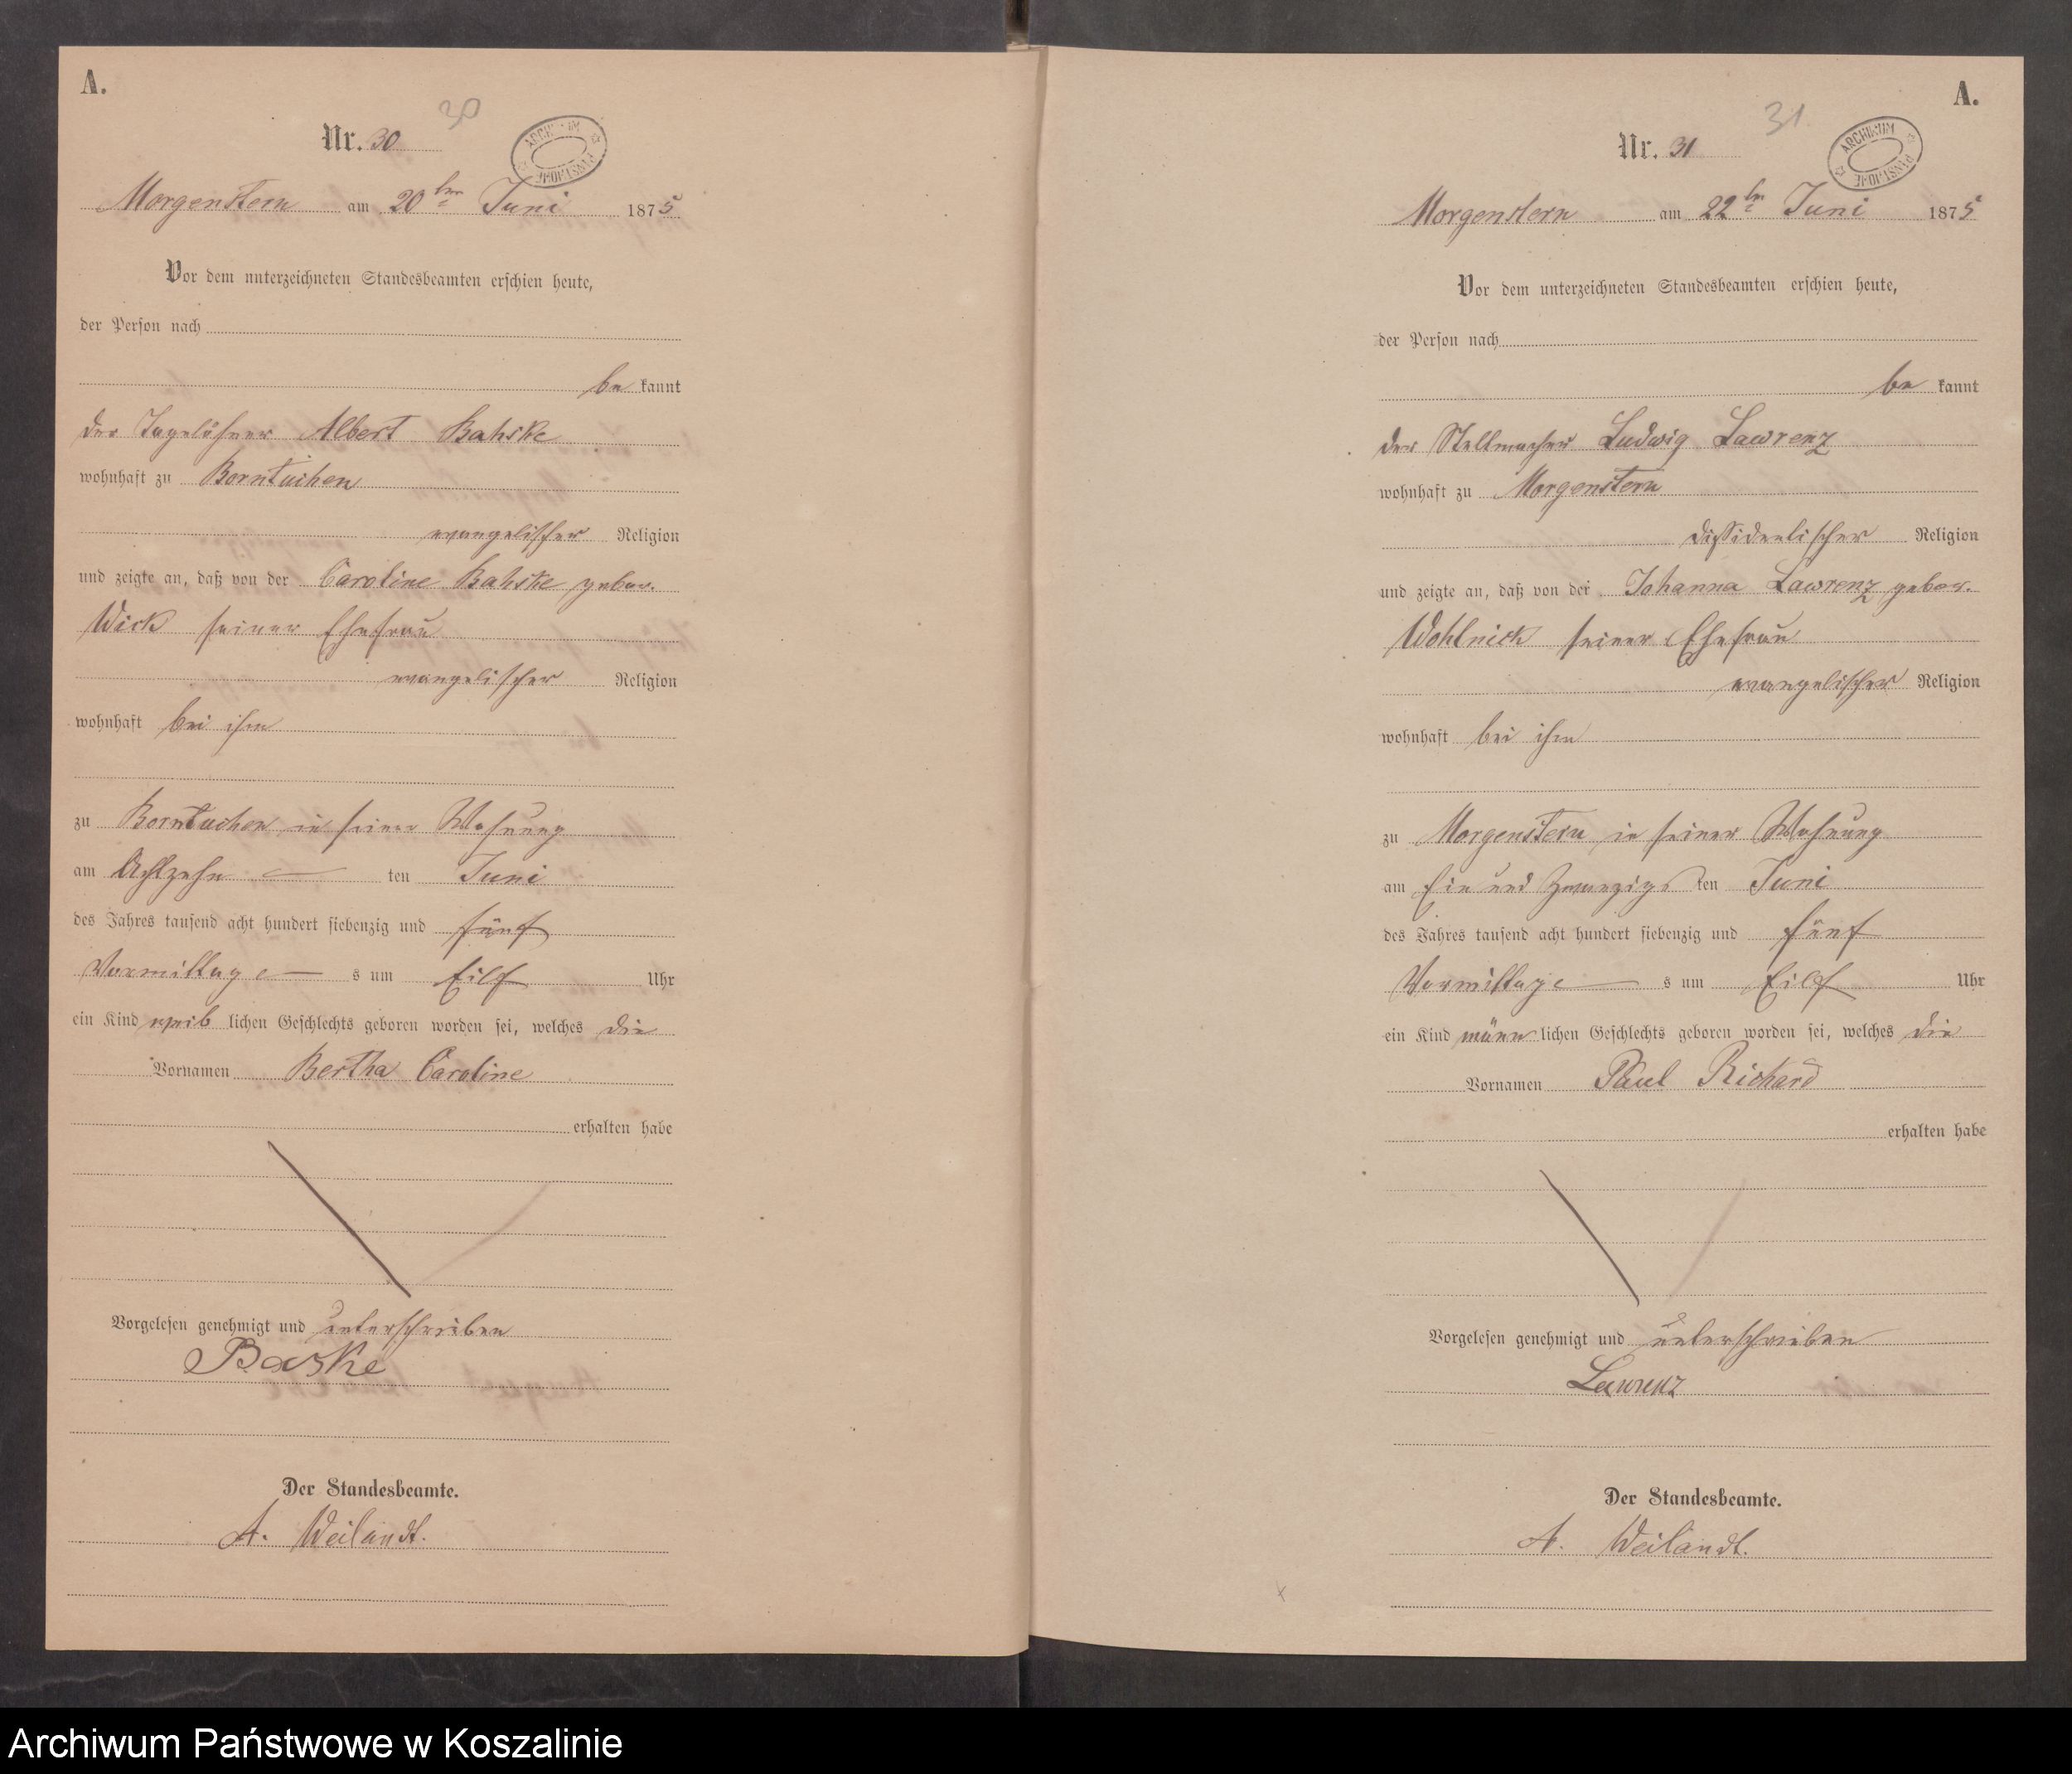 A.
Nr. 30
30
ARCHIWUM PAŃSTWOWE
Morgenstern am 20ten Juni 1875
Vor dem unterzeichneten Standesbeamten erschien heute,
der Person nach
be kannt
der Tagelöhner Albert Bahske
wohnhaft zu Borntuchen
evangelischer Religion
und zeigte an, daß von der Caroline Bahske gebor.
Wick seiner Ehefrau
evangelischer Religion
wohnhaft bei ihm
zu Borntuchen in seiner Wohnung
am Achtzehn ten Juni
des Jahres tausend acht hundert siebenzig und fünf
Vormittage s um Eilf Uhr
ein Kind weib lichen Geschlechts geboren worden sei, welches die
Vornamen Bertha Caroline
erhalten habe
Vorgelesen genehmigt und unterschrieben
Baske
Der Standesbeamte.
A. Weilandt.
A.
Nr. 31
31
ARCHIWUM PAŃSTWOWE
Morgenstern am 22ten Juni 1875
Vor dem unterzeichneten Standesbeamten erschien heute,
der Person nach
be kannt
der Stellmacher Ludwig Lawrenz
wohnhaft zu Morgenstern
dissidentischer Religion
und zeigte an, daß von der Johanna Lawrenz gebor.
Wohlnick seiner Ehefrau
evangelischer Religion
wohnhaft bei ihm
zu Morgenstern in seiner Wohnung
am Ein und Zwanzigs ten Juni
des Jahres tausend acht hundert siebenzig und fünf
Vormittage s um Eilf Uhr
ein Kind männ lichen Geschlechts geboren worden sei, welches die
Vornamen Paul Richard
erhalten habe
Vorgelesen genehmigt und unterschrieben
Lawrenz
Der Standesbeamte.
A. Weilandt.
Archiwum Państwowe w Koszalinie